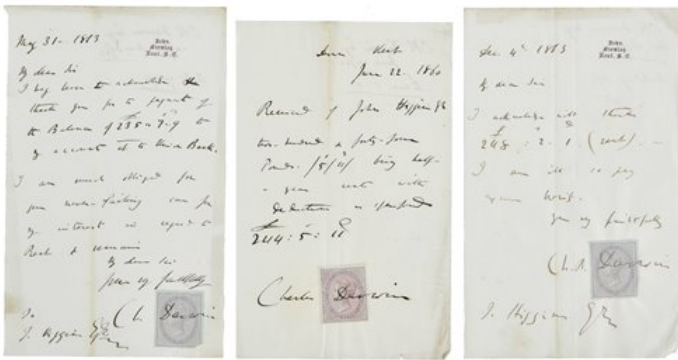 Down,
Bromley,
Kent. S.E.
May 31 - 1863
My dear Sir
I beg leave to acknowledge &
thank you for the payment of
the Balance of £235 = 7 = 9 to
my account at the Union Bank.
I am much obliged for
your never-failing care for
my interest in regard to
Rent & remain
My dear Sir
yours very faithfully
Ch. Darwin
To
J. Higgins Esq
Down Kent
June 22. 1860
Received of John Higgins Esq
two-hundred & forty-four
Pounds /5/11/ being half-
a year rents with
deductions as specified
£244 : 5 : 11
Charles Darwin
Down,
Bromley,
Kent. S.E.
Dec 4th 1863
My dear Sir
I acknowledge with thanks
£248 : 2 . 1. (rent). —
I am ill so pray
excuse brevity.
yours very faithfully
Ch. Darwin
J. Higgins Esq